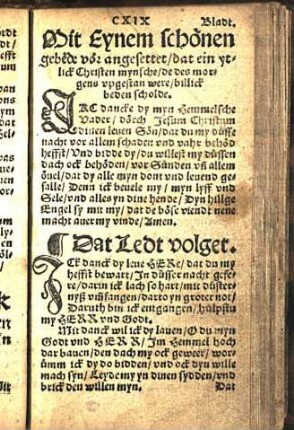 CXIX Bladt.
Mit Eynem schönen
gebede vör angesettet / dat ein yt-
lick Christen mynsche / de des mor-
gens vpgestan were / billick
beden scholde.
JCk dancke dy myn Hemmelsche
Vader / dörch Jesum Christum
dinen leuen Sön / dat du my düsse
nacht vor allem schaden vnd vahr behöd
hefft / Vnd bidde dy / du willest my düssen
dach ock behöden / vor Sünden vn allem
öuel / dat dy alle myn dont vnd leuend ge-
falle / Denn ick beuele my / myn lyff vnd
Sele / vnd alles yn dine hende / Dyn hillige
Engel sy mit my / dat de böse viendt nene
macht auer my vinde / Amen.
Dat Ledt volget.
JCk danck dy leue HERe / dat du my
hefft bewart / In düsser nacht gefe-
re / darin ick lach so hart / mit düster-
nyß vmfangen / darto yn groter not /
Daruth bin ick entgangen / hülpstu
my HERR vnd Godt.
Mit danck wil ick dy lauen / O du myn
Godt vnd HERR / Im Hemmel hoch
dar bauen / den dach my ock geweer / wor-
ümm ick dy do bidden / vnd ock dyn wille
mach syn / Leyde my yn dinen sydden / vnd
brick den willen myn. Dat